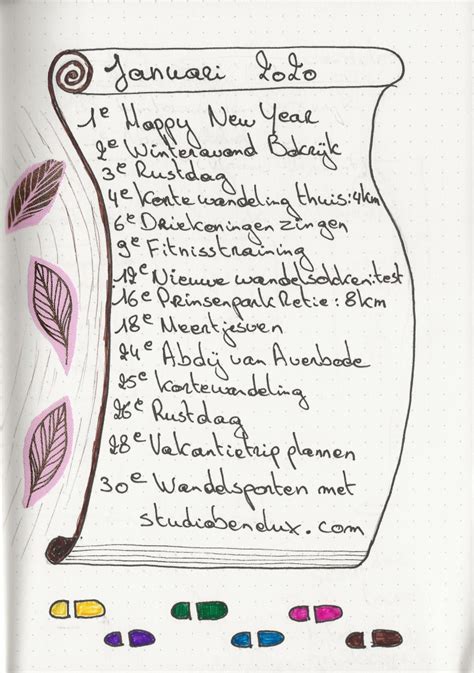 Januari 2020
1e Happy New Year
2e Winteravond Bokrijk
3e Rustdag
4e Korte wandeling thuis: 4km
6e Driekoningen zingen
9e Fitnisstraining
12e Nieuwe wandelsokken: test
16e Prinsenpark Retie: 8km
18e Meertjesven
24e Abdij van Averbode
25e Korte wandeling
26e Rustdag
28e Vakantietrip plannen
30e Wandelsporten met
studiobenelux.com